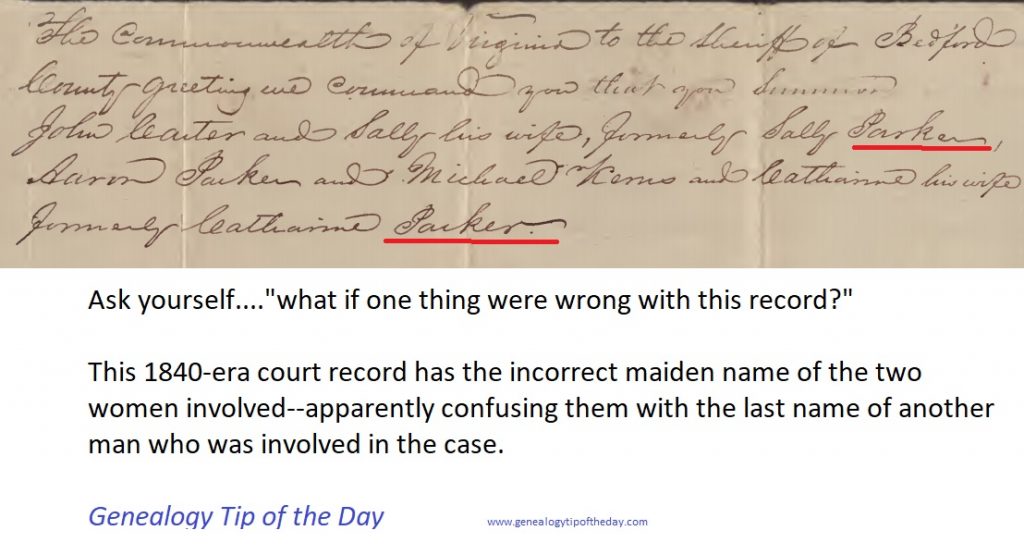 The Commonwealth of Virginia to the Sheriff of Bedford
County greeting we command you that you Summon
John Carter and Sally his wife, formerly Sally Parker,
Aaron Parker and Michael Kerns and Catharine his wife
formerly Catharine Parker.
Ask yourself...."what if one thing were wrong with this record?"
This 1840-era court record has the incorrect maiden name of the two
women involved--apparently confusing them with the last name of another
man who was involved in the case.
Genealogy Tip of the Day
www.genealogytipoftheday.com